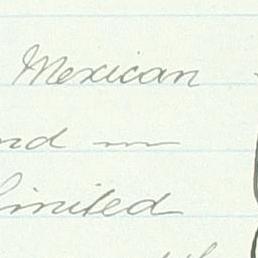 Mexican
nd in
limited